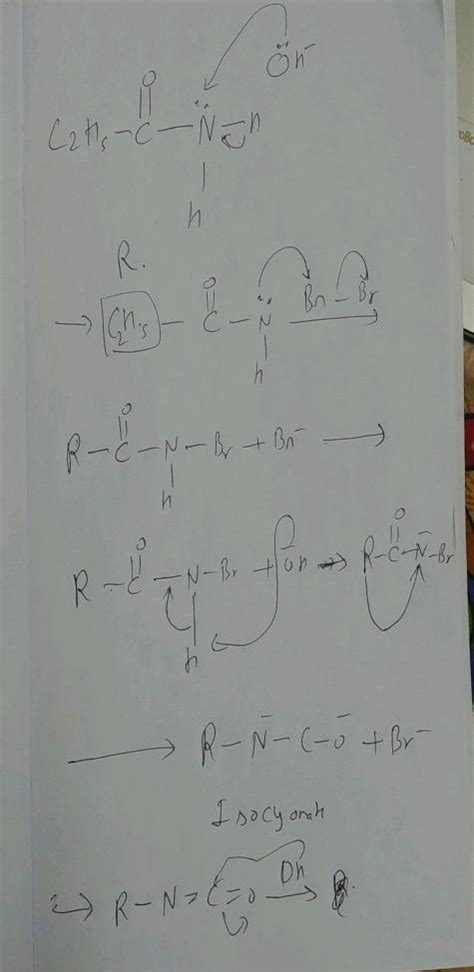 ÖH⁻
O
C₂H₅-C-N̈-H
H
R.
O
→ C₂H₅-C-N̈ Br-Br →
H
O
R-C-N-Br + Br⁻ →
H
O O
R-C-N-Br + ŌH → R-C-N̄-Br
H
→ R-N̄-C-Ō + Br⁻
Isocyanate
→ R-N=C=O OH →